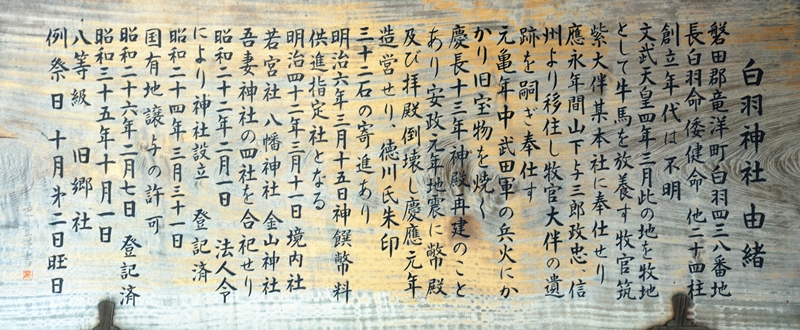 白羽神社由緒
磐田郡竜洋町白羽四三八番地
長白羽命 倭健命 他二十四柱
創立年代は不明
文武天皇四年三月此の地を牧地
として牛馬を放養す牧官筑
紫大伴某本社に奉仕せり
應永年間山下与三郎政忠、信
州より移住し牧官大伴の遺
跡を嗣ぎ奉仕す
元亀年中武田軍の兵火にか
かり旧宝物を焼く
慶長十三年神殿再建のこと
あり安政元年地震に幣殿
及び拝殿倒壊し慶應元年
造営せり 徳川氏朱印
三十二石の寄進あり
明治六年三月十五日神饌幣料
供進指定社となる
明治四十二年三月十一日境内社
若宮社 八幡神社 金山神社
吾妻神社の四社を合祀せり
昭和二十二年二月一日 法人令
により神社設立 登記済
昭和二十四年三月三十一日
国有地譲与の許可
昭和二十六年二月七日 登記済
昭和三十五年十月一日
八等級 旧郷社
例祭日 十月㐧二日旺日